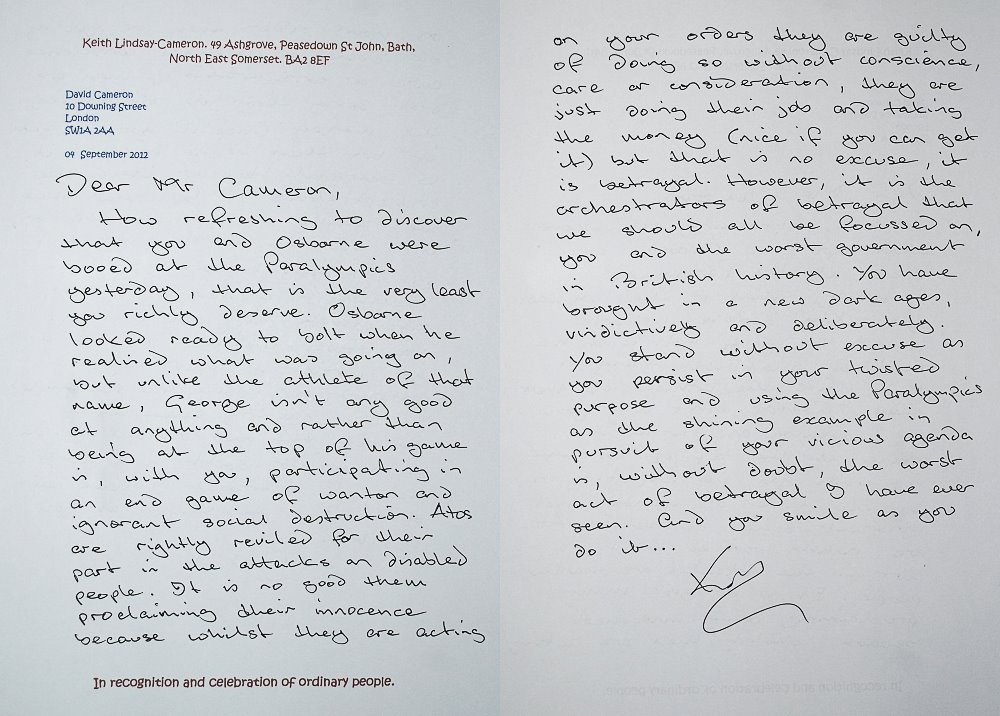 Keith Lindsay-Cameron. 49 Ashgrove, Peasedown St John, Bath,
North East Somerset. BA2 8EF
David Cameron
10 Downing Street
London
SW1A 2AA
04 September 2012
Dear Mr Cameron,
How refreshing to discover
that you and Osborne were
booed at the Paralympics
yesterday, that is the very least
you richly deserve. Osborne
looked ready to bolt when he
realised what was going on,
but unlike the athlete of that
name, George isn't any good
at anything and rather than
being at the top of his game
is, with you, participating in
an end game of wanton and
ignorant social destruction. Atos
are rightly reviled for their
part in the attacks on disabled
people. It is no good them
proclaiming their innocence
because whilst they are acting
In recognition and celebration of ordinary people.
on your orders they are guilty
of doing so without conscience,
care or consideration, they are
just doing their job and taking
the money (nice if you can get
it) but that is no excuse, it
is betrayal. However, it is the
orchestrators of betrayal that
we should all be focussed on,
you and the worst government
in British history. You have
brought in a new dark ages,
vindictively and deliberately.
You stand without excuse as
you persist in your twisted
purpose and using the Paralympics
as the shining example in
pursuit of your vicious agenda
is, without doubt, the worst
act of betrayal I have ever
seen. And you smile as you
do it...